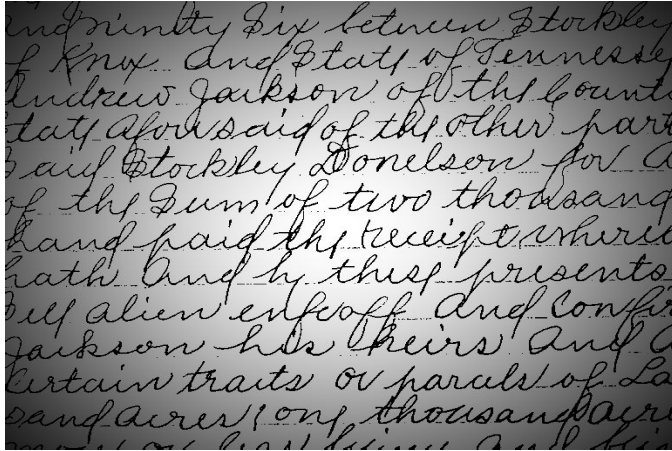 and ninety Six between Stockley
of Knox and State of Tennessee
Andrew Jackson of the Count
State aforesaid of the other part
Said Stockley Donelson for
of the Sum of two thousand
hand paid the receipt where
hath and by these presents
Sell alien enfeoff and confir
Jackson his heirs and a
Certain traits or parcels of La
sand acres (one thousand acre
more or less being and